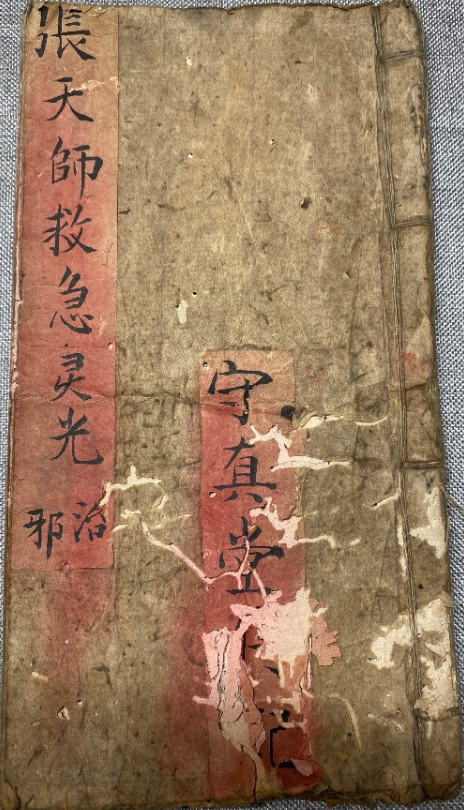 張天師救急灵光
治邪
守真堂記